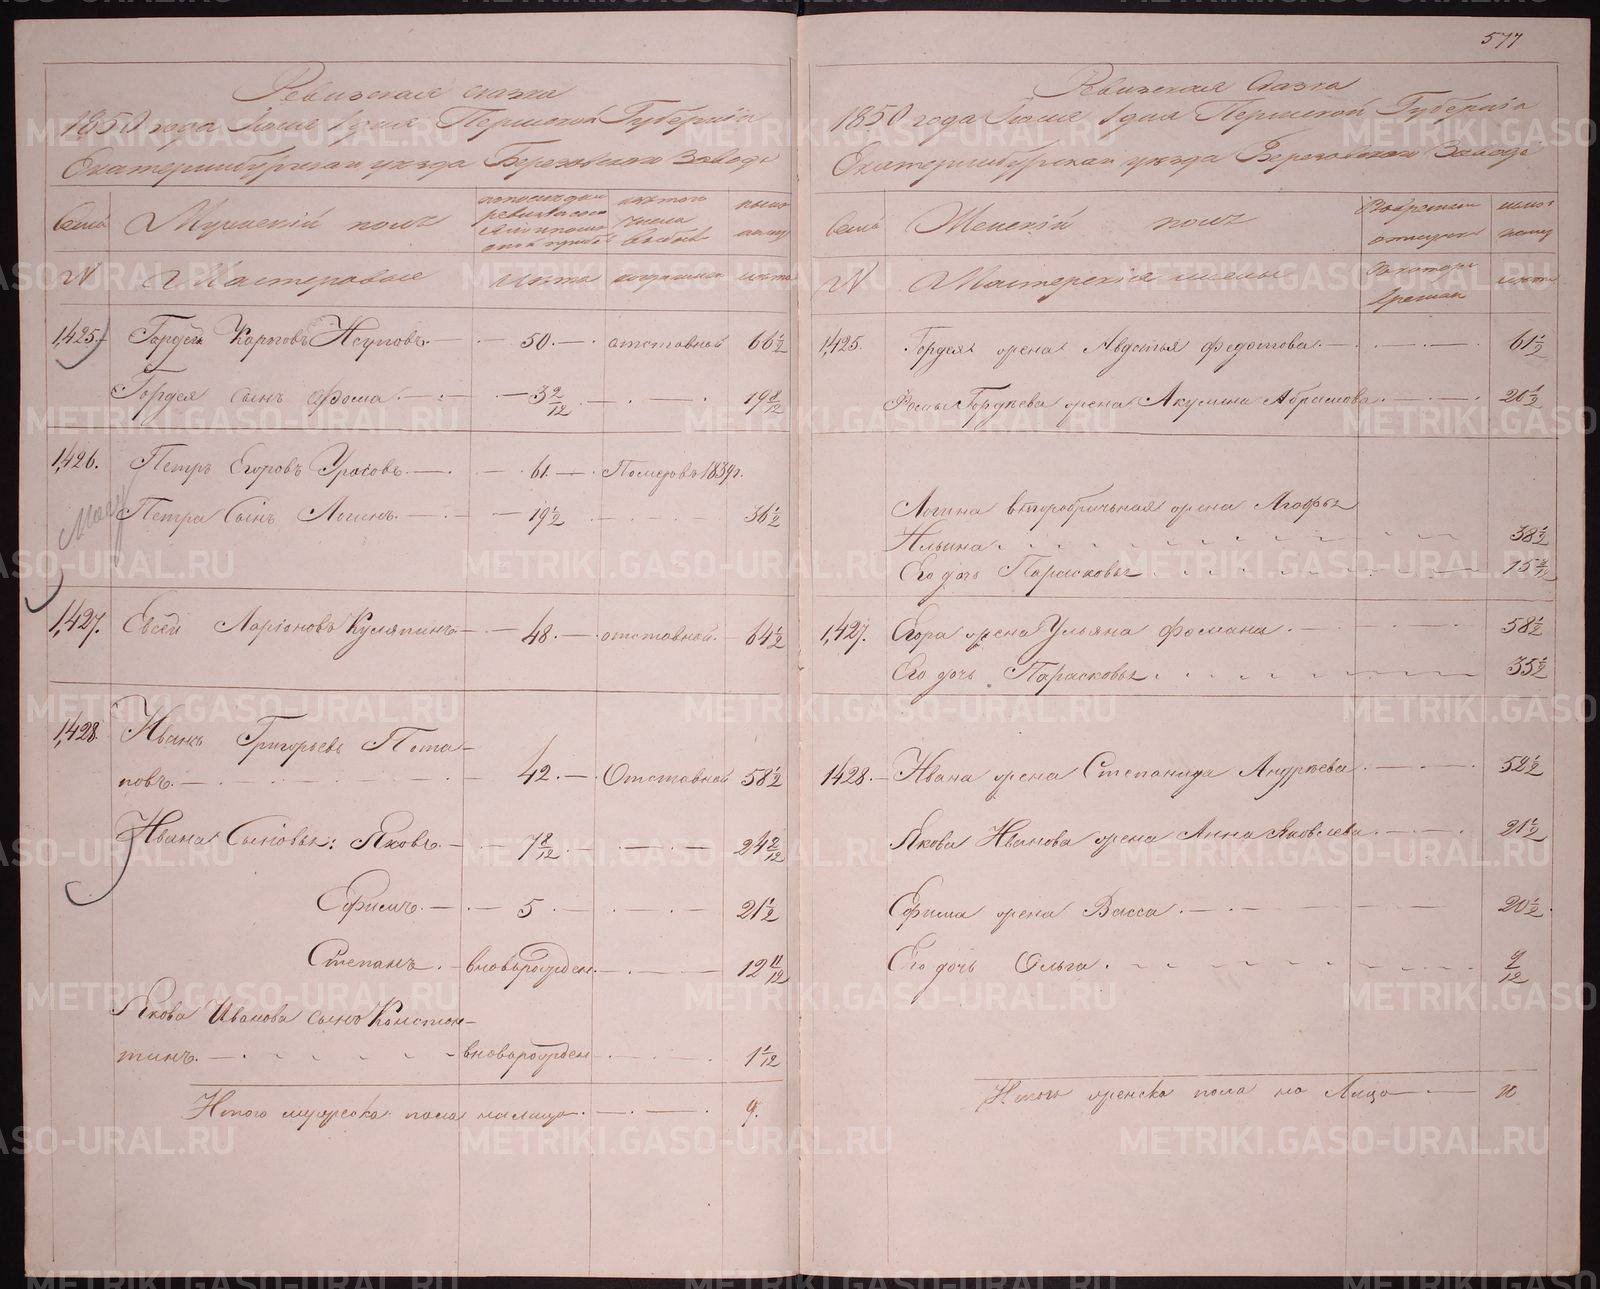 577
Ревизская сказка
1850 года Июня 1 дня Пермской Губернiи
Екатеринбургскаго уезда Березовскаго Завода
Семьи
Мужескiй полъ
по последней ревизiи состояло и после оной прибыло
изъ того числа выбыло
ныне на лицо
N
Мастеровые
лета
когда именно
лета
1,425.
Гордей Карповъ Исуповъ
50.
отставной
66 1/2
Гордея сынъ Фома
3 2/12
19 8/12
1,426.
Петръ Егоровъ Урасовъ
61.
Померъ въ 1839 г.
Петра Сынъ Логинъ
19 1/2
36 1/2
1,427.
Евсей Ларiоновъ Куляпинъ
48.
отставной
64 1/2
1,428.
Иванъ Григорьевъ Пота-
повъ.
42.
Отставной
58 1/2
Ивана Сыновья: Яковъ
7 8/12
24 2/12
Ефимъ.
5
21 1/2
Степанъ.
вноворожден.
12 11/12
Якова Иванова сынъ Констан-
тинъ.
вноворожден
1 1/12
Итого мужеска пола налицо.
9.
Ревизская Сказка
1850 года Июня 1 дня Пермской Губернiя
Екатеринбургскаго уезда Березовскаго Завода
Семьи
Женскiй полъ
Во временной отлучке
ныне на лицо
N
Мастерскiя жены
Съ котораго времени
лета
1,425.
Гордея жена Авдотья Федотова.
61 1/2
Фомы Гордеева жена Акулина Абрамова.
20 1/2
Логина второбрачная жена Агафья
Ильина.
38 1/2
Его дочь Парасковья
15
1,427.
Егора жена Ульяна Фомина
58 1/2
Его дочь Парасковья.
35 1/2
1428.
Ивана жена Степанида Андреева
52 1/2
Якова Иванова жена Анна Яковлева
21 1/2
Ефима жена Васса.
20 1/2
Его дочь Ольга.
9/12
Итого женска пола на Лицо
10
METRIKI.GASO-URAL.RU